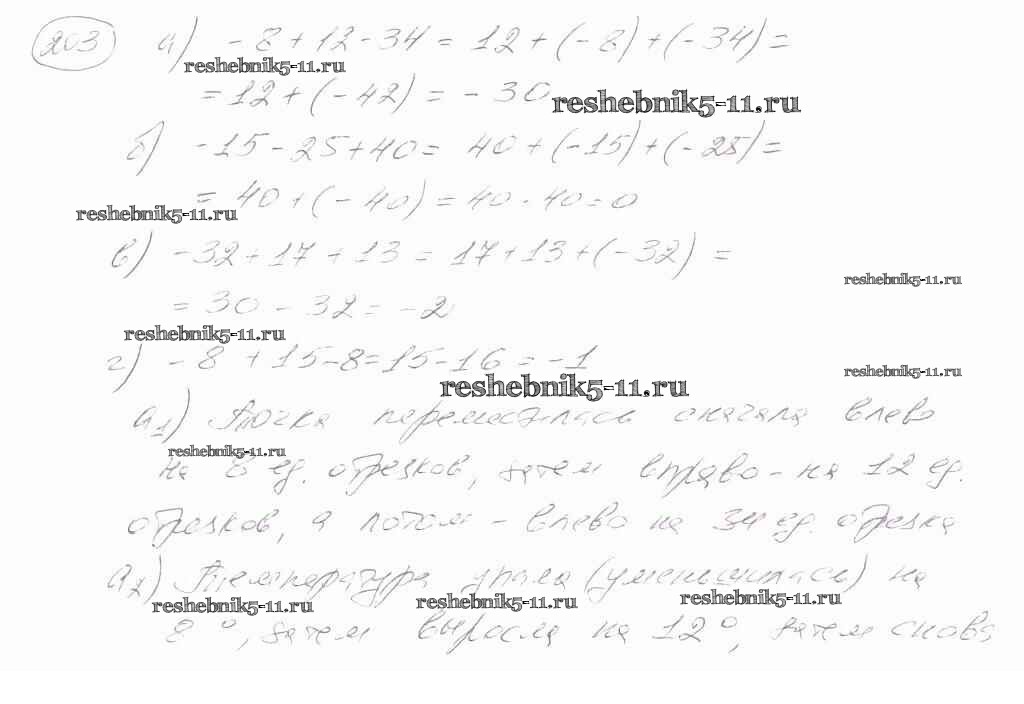 203 а) -8+12-34 = 12+(-8)+(-34)=
reshebnik5-11.ru
=12+(-42) = -30
reshebnik5-11.ru
б) -15-25+40= 40+(-15)+(-25)=
= 40+(-40)=40-40=0
reshebnik5-11.ru
в) -32+17+13=17+13+(-32)=
reshebnik5-11.ru
=30-32=-2
reshebnik5-11.ru
г) -8+15-8=15-16=-1
reshebnik5-11.ru
reshebnik5-11.ru
а1) Точка переместилась сначала влево
reshebnik5-11.ru
на 8 ед. отрезков, затем вправо - на 12 ед.
отрезков, а потом - влево на 34 ед. отрезка
а2) Температура упала (уменьшилась) на
reshebnik5-11.ru reshebnik5-11.ru reshebnik5-11.ru
8°, затем выросла на 12°, затем снова